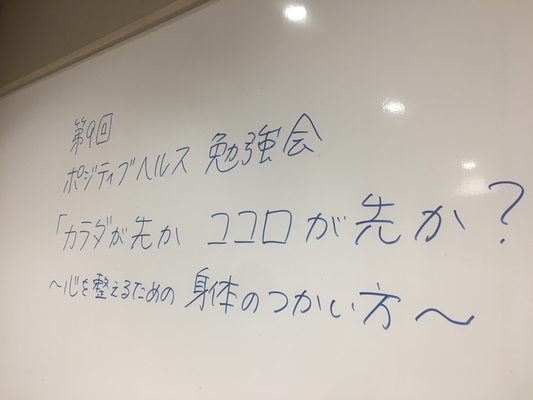 第9回
ポジティブヘルス 勉強会
「カラダが先か ココロが先か?
~心を整えるための 身体のつかい方~